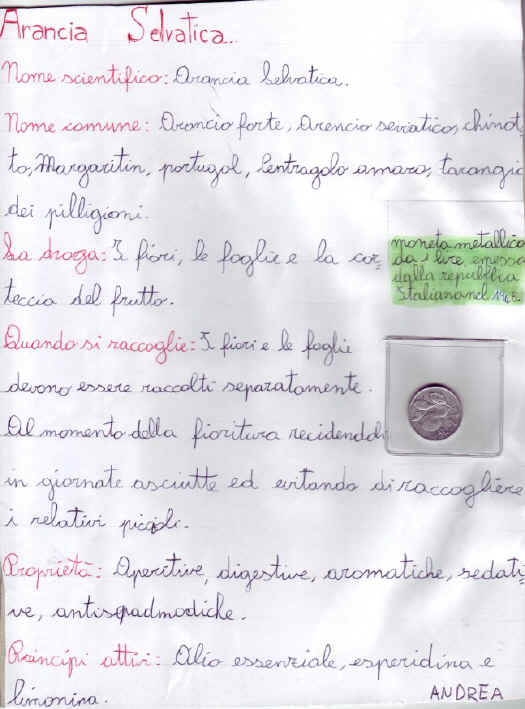 Arancia Selvatica...
Nome scientifico: Arancia Selvatica.
Nome comune: Arancio forte, Arencio selvatico, chinot
to, Margaritin, portugol, Sentragolo amaro, tarangic
dei pilligioni.
La droga: I fiori, le foglie e la cor,
teccia del frutto.
moneta metallica
da 1 lire emessa
dalla repubblica
Italiana nel
Quando si raccoglie: I fiori e le foglie
devono essere raccolti separatamente.
Al momento della fioritura recidendoli
in giornate asciutte ed evitando di raccogliere
i relativi piccioli.
Proprietà: Aperitive, digestive, aromatiche, sedati,
ve, antispadmodiche.
Principi attivi: Olio essenziale, esperidina e
limonina.
ANDREA